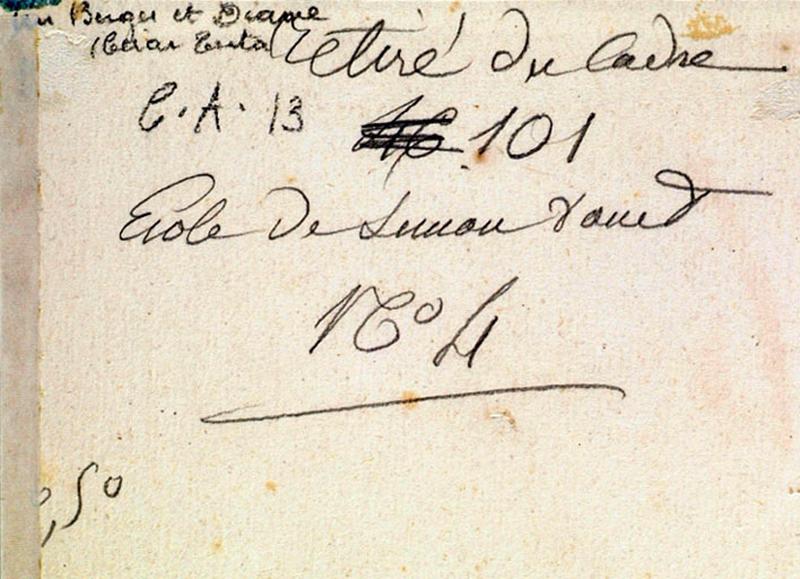 Berger et Diane
retiré du Cadre
C.A. 13 101
Ecole de Simon Vouet
No 4
,50